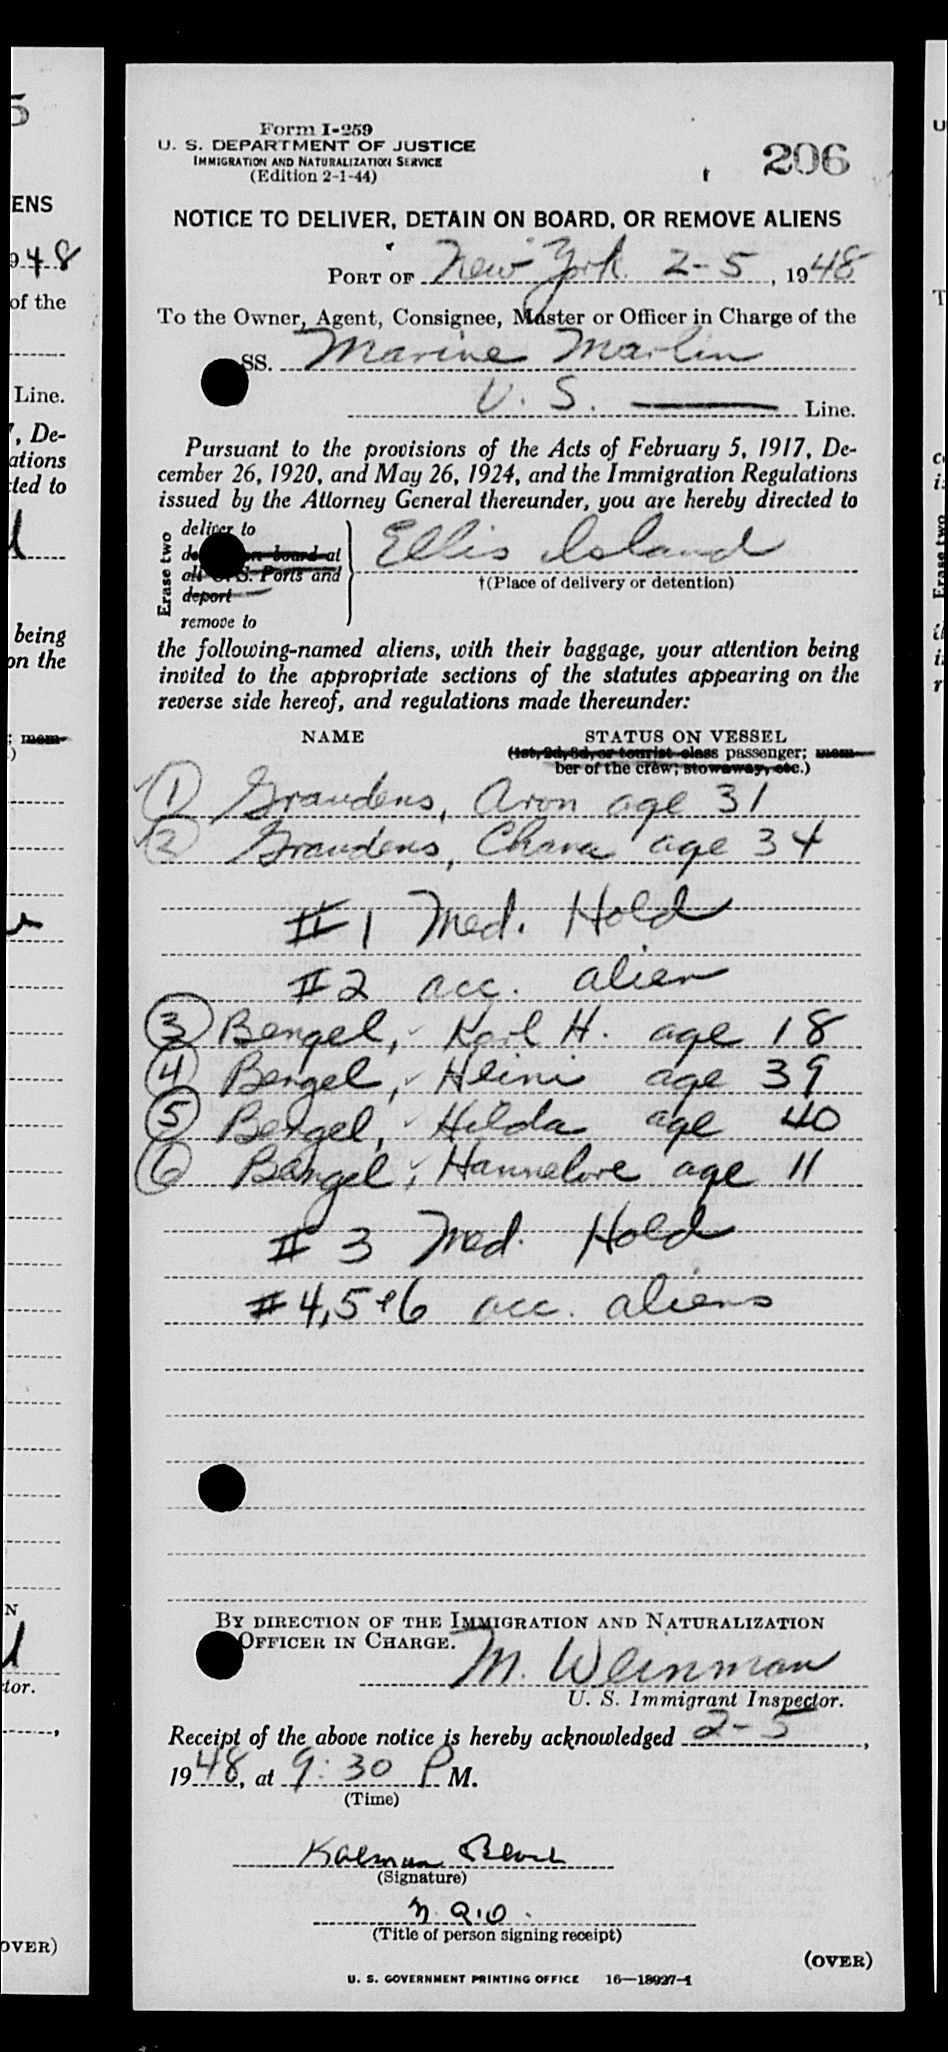 Form I-259
U. S. DEPARTMENT OF JUSTICE
IMMIGRATION AND NATURALIZATION SERVICE
(Edition 2-1-44)
206
NOTICE TO DELIVER, DETAIN ON BOARD, OR REMOVE ALIENS
PORT OF New York 2-5, 1948
To the Owner, Agent, Consignee, Master or Officer in Charge of the
SS. Marine Marlin
U. S. Line.
Pursuant to the provisions of the Acts of February 5, 1917, De-
cember 26, 1920, and May 26, 1924, and the Immigration Regulations
issued by the Attorney General thereunder, you are hereby directed to
Erase two
deliver to
on board at
all U. S. Ports and
deport
remove to
Ellis Island
†(Place of delivery or detention)
the following-named aliens, with their baggage, your attention being
invited to the appropriate sections of the statutes appearing on the
reverse side hereof, and regulations made thereunder:
NAME STATUS ON VESSEL
(1st, 2d, 3d, or tourist class passenger; mem-
ber of the crew; stowaway, etc.)
1 Graudens, Aron age 31
2 Graudens, Chana age 34
#1 Med. Hold
#2 acc. alien
3 Bengel, Karl H. age 18
4 Bengel, Heini age 39
5 Bengel, Hilda age 40
6 Bengel, Hannelore age 11
#3 Med. Hold
#4, 5 & 6 acc. aliens
BY DIRECTION OF THE IMMIGRATION AND NATURALIZATION
OFFICER IN CHARGE.
M. Weinman
U. S. Immigrant Inspector.
Receipt of the above notice is hereby acknowledged 2-5,
1948, at 9:30 P M.
(Time)
Kalman
(Signature)
(Title of person signing receipt)
(OVER)
U. S. GOVERNMENT PRINTING OFFICE 16—18927-1